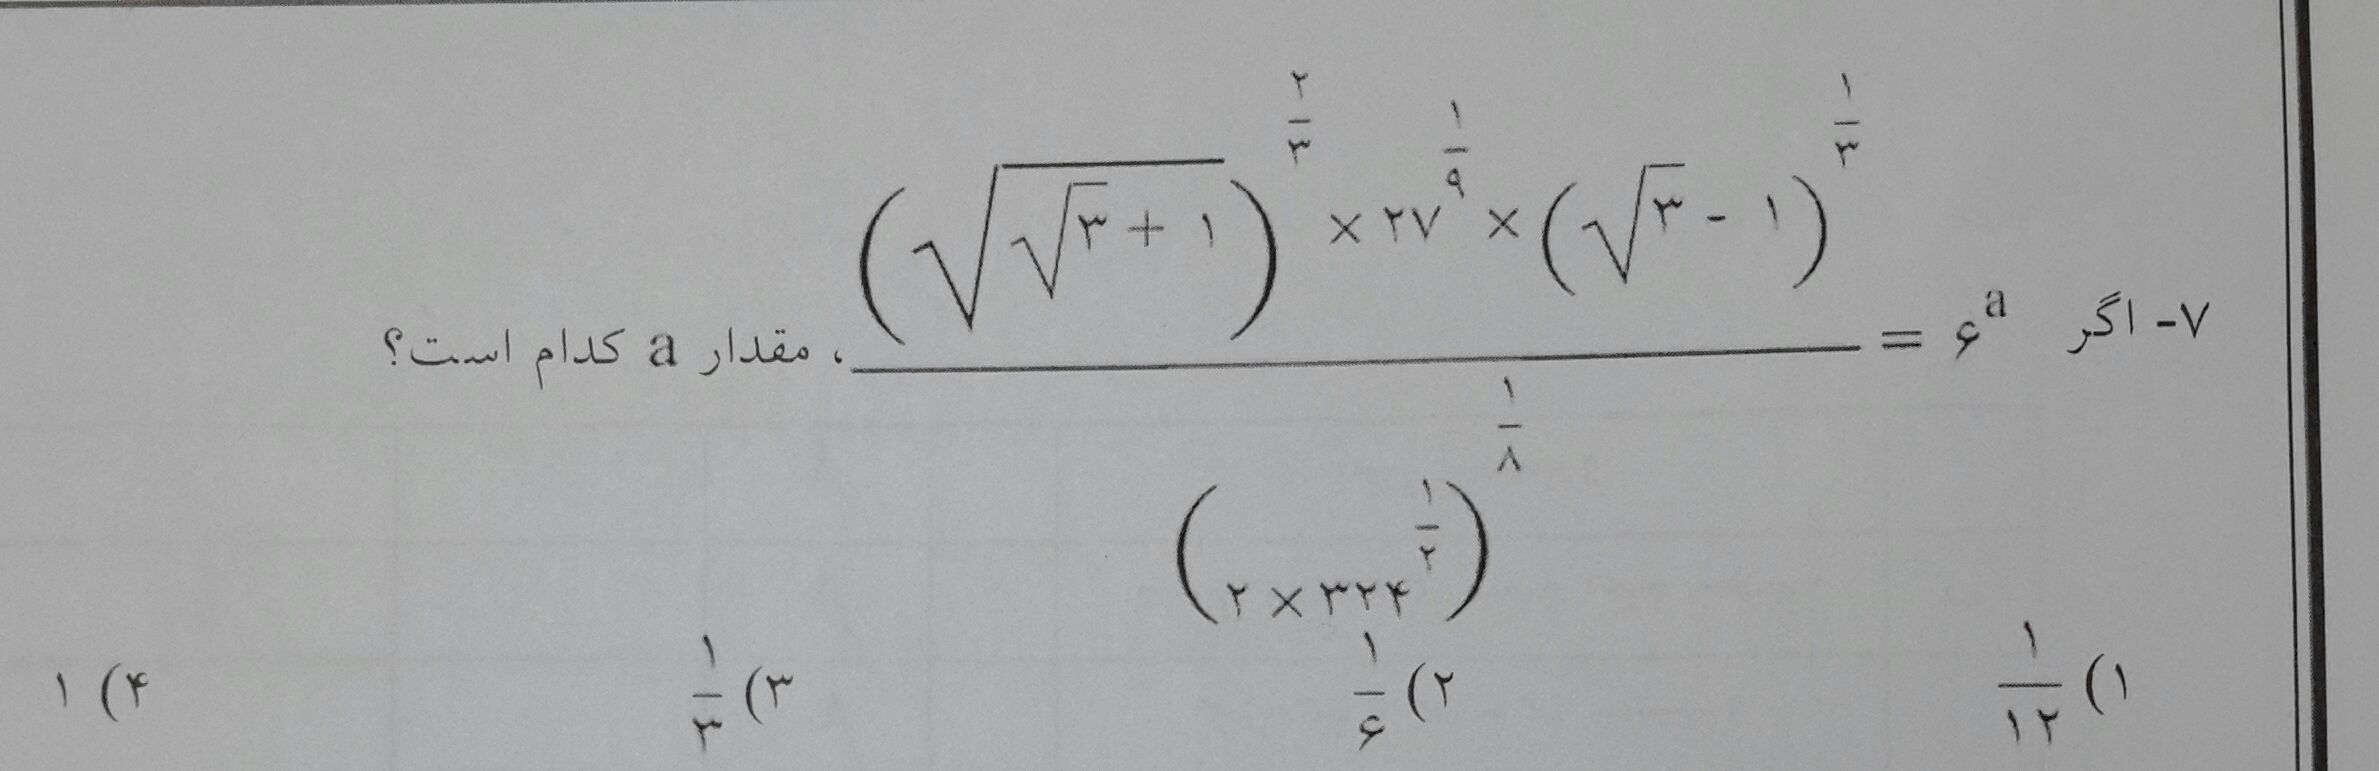 ۷- اگر ((√(√۳ + ۱))^(۲/۳) × ۲۷^(۱/۹) × (√۳ - ۱)^(۱/۳)) / (۲ × ۳۲۴^(۱/۲))^(۱/۸) = ۶^a ، مقدار a کدام است؟
۱) ۱/۱۲ ۲) ۱/۶ ۳) ۱/۳ ۴) ۱